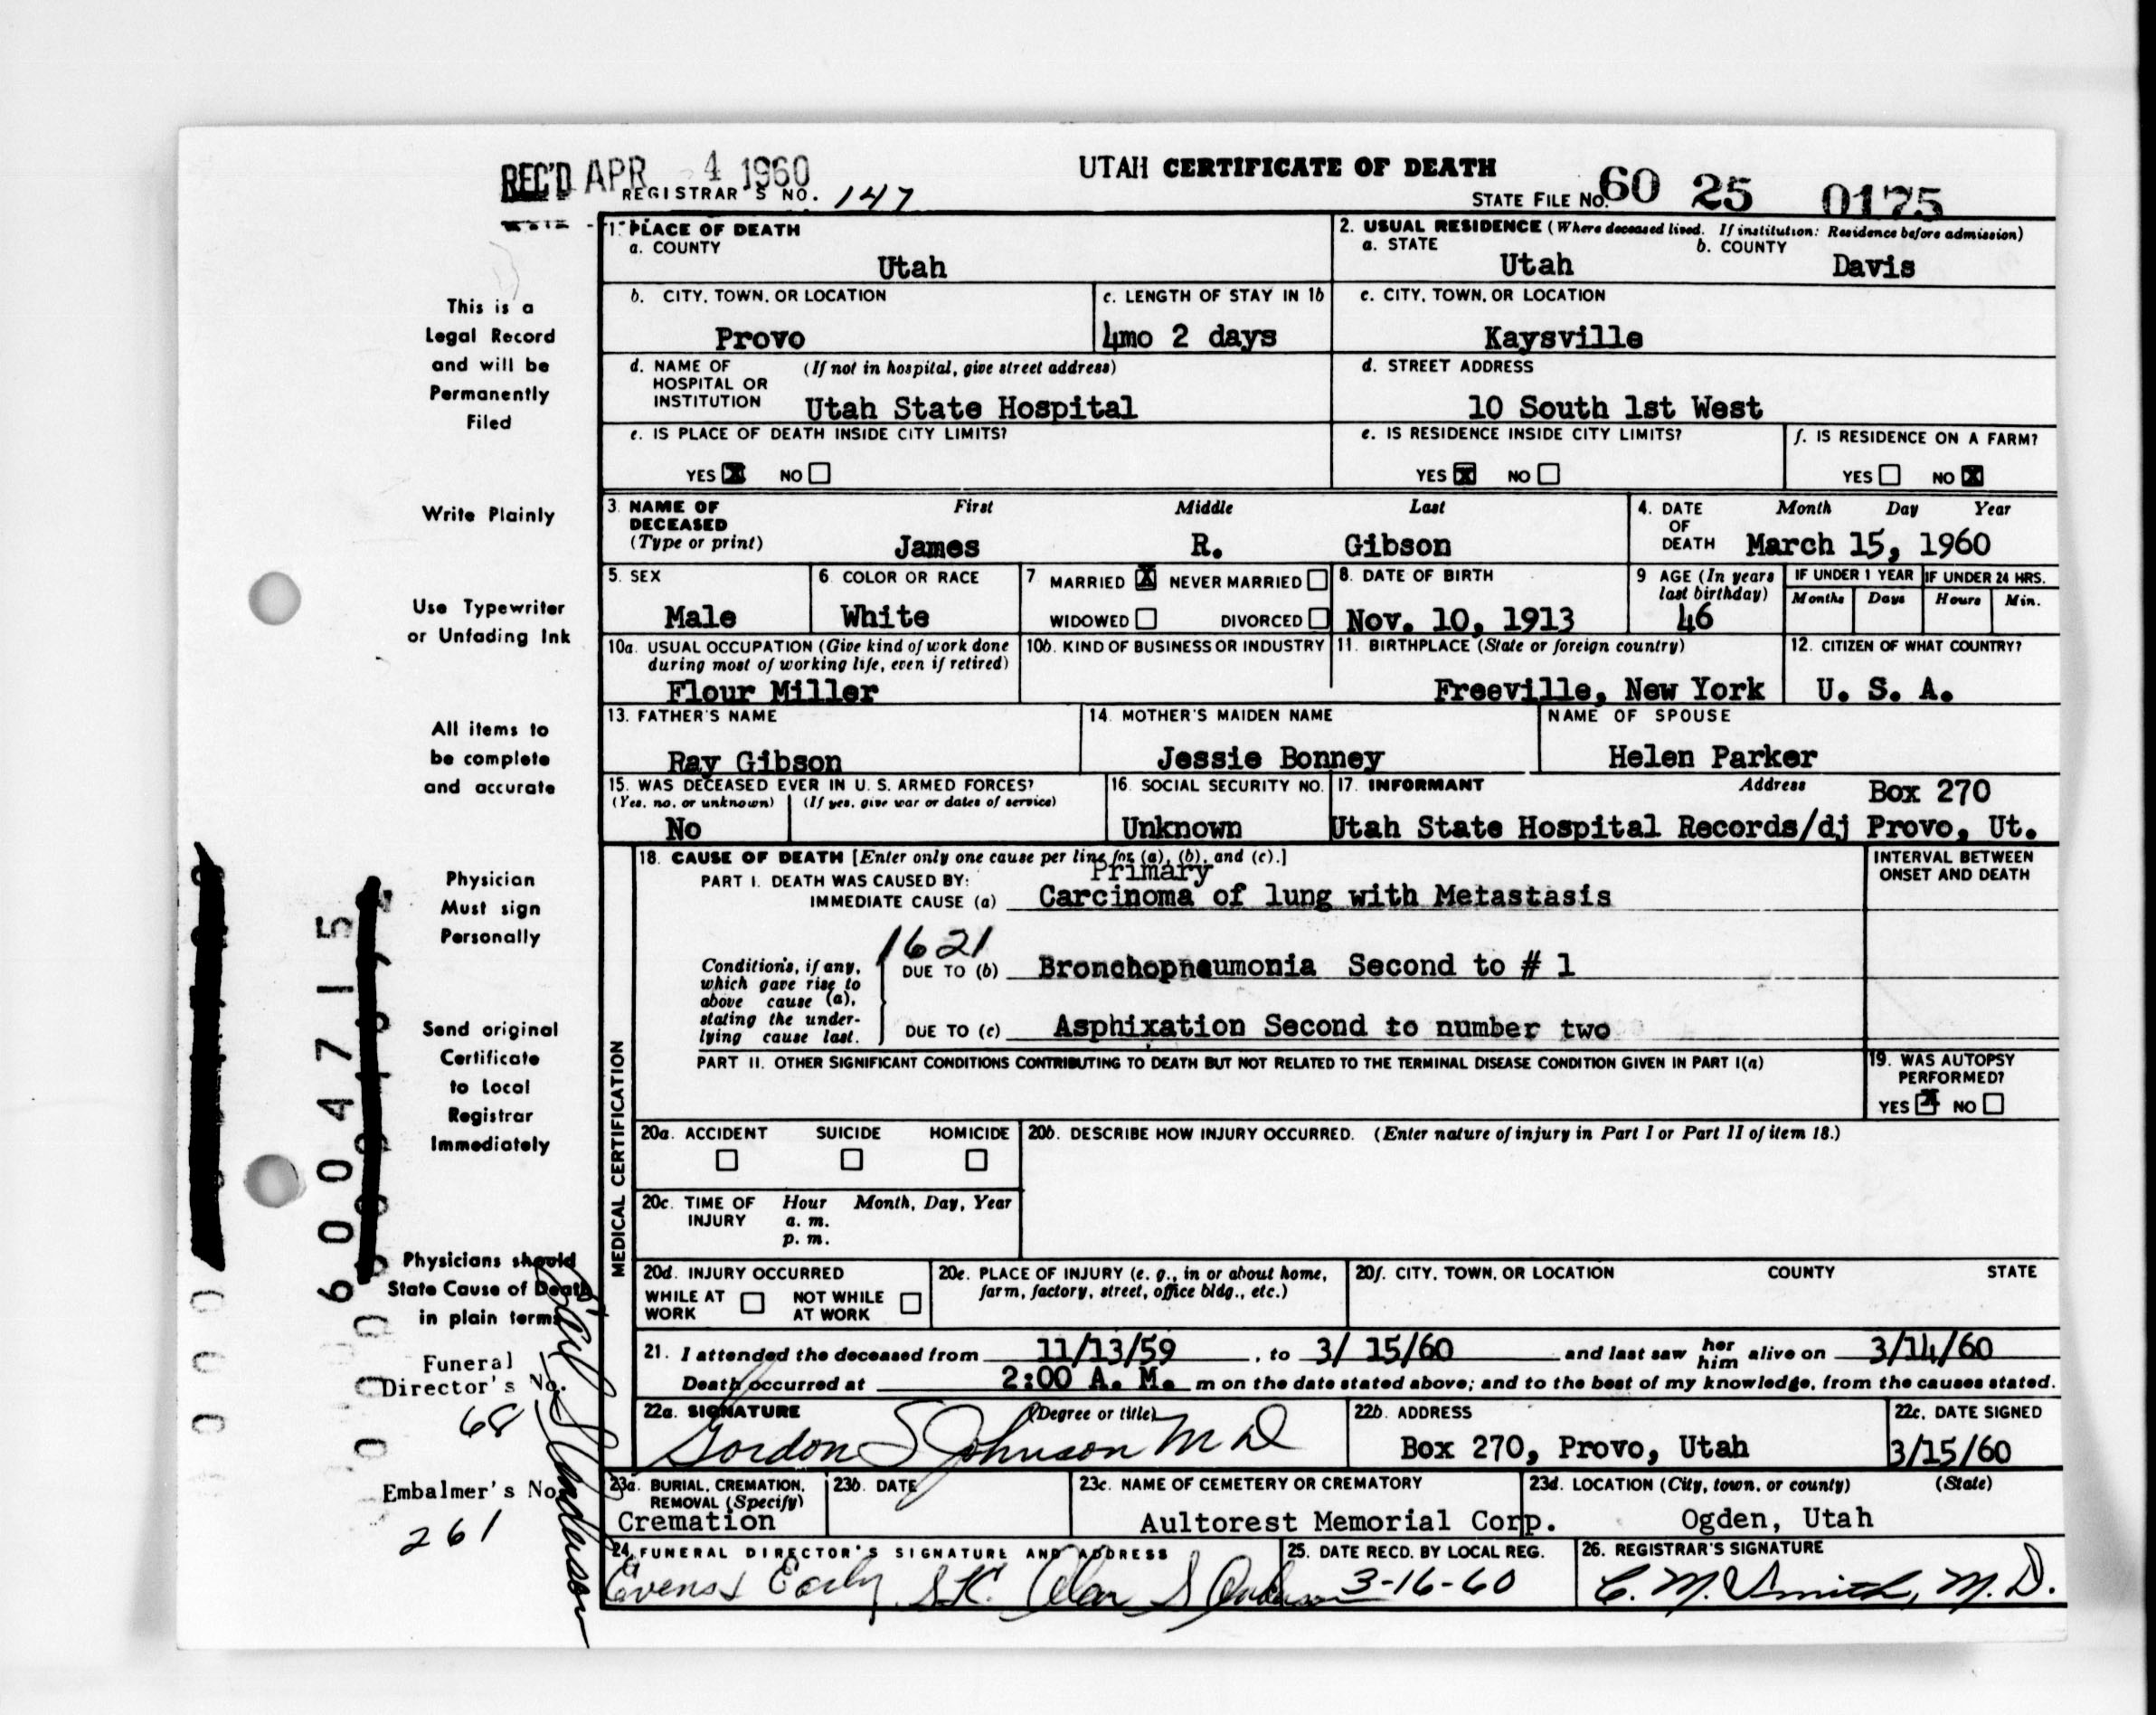 REC'D APR 4 1960
UTAH CERTIFICATE OF DEATH
REGISTRAR'S NO. 147
STATE FILE NO. 60 25 0175
1. PLACE OF DEATH
a. COUNTY
Utah
2. USUAL RESIDENCE (Where deceased lived. If institution: Residence before admission)
a. STATE b. COUNTY
Utah Davis
b. CITY, TOWN, OR LOCATION
Provo
c. LENGTH OF STAY IN 1b
4mo 2 days
c. CITY, TOWN, OR LOCATION
Kaysville
d. NAME OF HOSPITAL OR INSTITUTION (If not in hospital, give street address)
Utah State Hospital
d. STREET ADDRESS
10 South 1st West
e. IS PLACE OF DEATH INSIDE CITY LIMITS?
YES X NO
e. IS RESIDENCE INSIDE CITY LIMITS?
YES X NO
f. IS RESIDENCE ON A FARM?
YES NO X
3. NAME OF DECEASED (Type or print)
First Middle Last
James R. Gibson
4. DATE OF DEATH Month Day Year
March 15, 1960
5. SEX
Male
6. COLOR OR RACE
White
7 MARRIED X NEVER MARRIED
WIDOWED DIVORCED
8. DATE OF BIRTH
Nov. 10, 1913
9 AGE (In years last birthday)
46
IF UNDER 1 YEAR IF UNDER 24 HRS.
Months Days Hours Min.
10a. USUAL OCCUPATION (Give kind of work done during most of working life, even if retired)
Flour Miller
10b. KIND OF BUSINESS OR INDUSTRY
11. BIRTHPLACE (State or foreign country)
Freeville, New York
12. CITIZEN OF WHAT COUNTRY?
U. S. A.
13. FATHER'S NAME
Ray Gibson
14. MOTHER'S MAIDEN NAME
Jessie Bonney
NAME OF SPOUSE
Helen Parker
15. WAS DECEASED EVER IN U. S. ARMED FORCES?
(Yes, no, or unknown) (If yes, give war or dates of service)
No
16. SOCIAL SECURITY NO.
Unknown
17. INFORMANT Address
Box 270
Utah State Hospital Records/dj Provo, Ut.
18. CAUSE OF DEATH [Enter only one cause per line for (a), (b), and (c).]
INTERVAL BETWEEN ONSET AND DEATH
PART I. DEATH WAS CAUSED BY:
Primary
IMMEDIATE CAUSE (a) Carcinoma of lung with Metastasis
1621
Conditions, if any, which gave rise to above cause (a), stating the underlying cause last.
DUE TO (b) Bronchopneumonia Second to # 1
DUE TO (c) Asphixation Second to number two
PART II. OTHER SIGNIFICANT CONDITIONS CONTRIBUTING TO DEATH BUT NOT RELATED TO THE TERMINAL DISEASE CONDITION GIVEN IN PART I(a)
19. WAS AUTOPSY PERFORMED?
YES X NO
MEDICAL CERTIFICATION
20a. ACCIDENT SUICIDE HOMICIDE
20b. DESCRIBE HOW INJURY OCCURRED. (Enter nature of injury in Part I or Part II of item 18.)
20c. TIME OF INJURY Hour Month, Day, Year
a. m.
p. m.
20d. INJURY OCCURRED
WHILE AT WORK NOT WHILE AT WORK
20e. PLACE OF INJURY (e. g., in or about home, farm, factory, street, office bldg., etc.)
20f. CITY, TOWN, OR LOCATION COUNTY STATE
21. I attended the deceased from 11/13/59, to 3/ 15/60 and last saw her him alive on 3/14/60
Death occurred at 2:00 A. M. m on the date stated above; and to the best of my knowledge, from the causes stated.
22a. SIGNATURE (Degree or title)
Gordon S Johnson MD
22b. ADDRESS
Box 270, Provo, Utah
22c. DATE SIGNED
3/15/60
23a. BURIAL, CREMATION, REMOVAL (Specify)
Cremation
23b. DATE
23c. NAME OF CEMETERY OR CREMATORY
Aultorest Memorial Corp.
23d. LOCATION (City, town, or county) (State)
Ogden, Utah
24. FUNERAL DIRECTOR'S SIGNATURE AND ADDRESS
25. DATE RECD. BY LOCAL REG.
3-16-60
26. REGISTRAR'S SIGNATURE
C. M. Smith, M. D.
This is a
Legal Record
and will be
Permanently
Filed
Write Plainly
Use Typewriter
or Unfading Ink
All items to
be complete
and accurate
Physician
Must sign
Personally
Send original
Certificate
to Local
Registrar
Immediately
Physicians should
State Cause of Death
in plain terms
Funeral
Director's No.
68
Embalmer's No
261
6004715